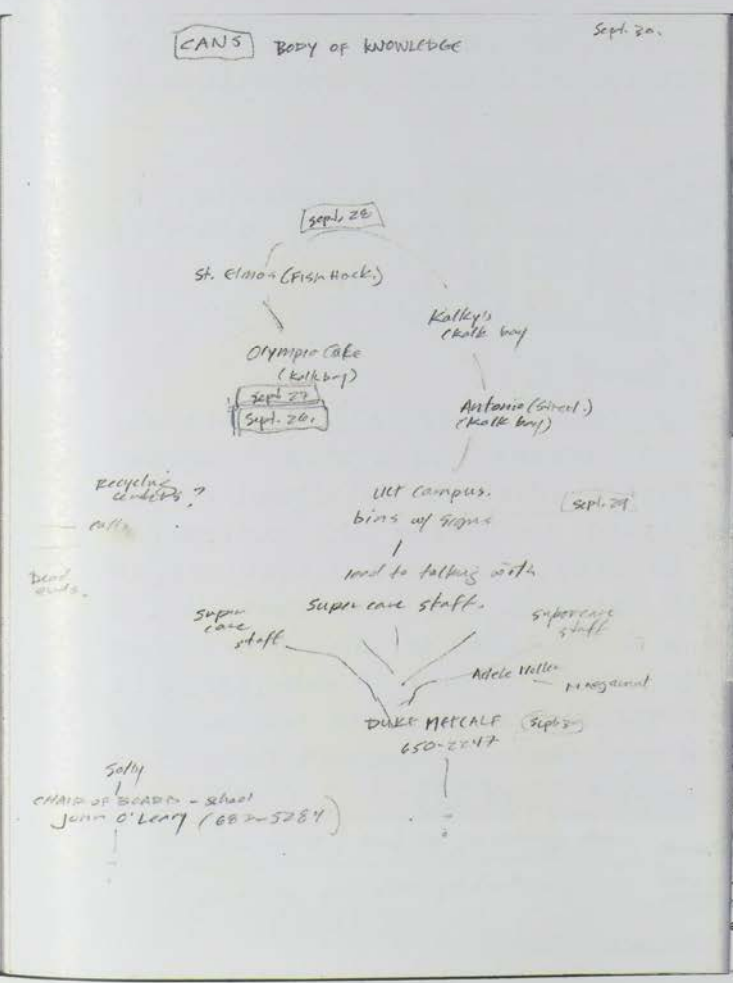 CANS BODY OF KNOWLEDGE
Sept. 30.
Sept. 28
St. Elmos (Fish Hoek.)
Kalky's
(Kalk bay
Olympia Cafe
(Kalk bay)
Sept 27
Sept. 26.
Antonio (Street.)
(Kalk bay)
Recycling
centers ?
calls
UCT campus.
bins w/ signs
Sept. 29
Dead
ends.
lead to talking with
Super care staff.
super
care
staff
supercare
staff
Adele
Margaret
DUKE METCALF
650-2247
Sept 30
Solly
CHAIR OF BOARD - school
John O'Leary (682-5284)